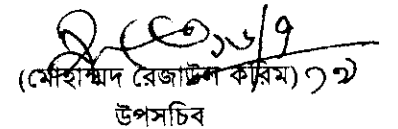 ১৬/৭
(মোহাম্মদ রেজাউল করিম) ১৭
উপসচিব